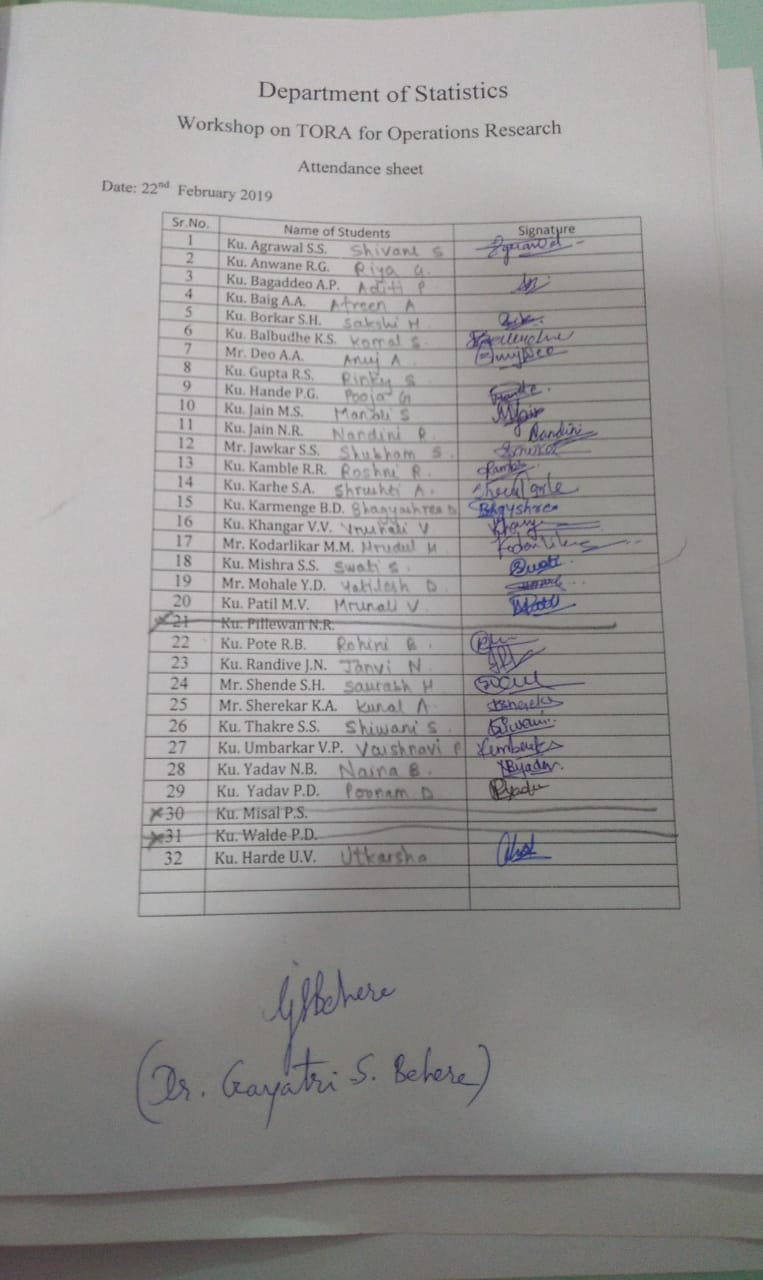 Department of Statistics
Workshop on TORA for Operations Research
Attendance sheet
Date: 22nd February 2019
Sr.No. Name of Students Signature
1 Ku. Agrawal S.S. Shivani S
2 Ku. Anwane R.G. Riya G.
3 Ku. Bagaddeo A.P. Aditi P
4 Ku. Baig A.A. Afreen A
5 Ku. Borkar S.H. Sakshi H
6 Ku. Balbudhe K.S. Komal S.
7 Mr. Deo A.A. Anuj A. AnujDeo
8 Ku. Gupta R.S. Rinky S
9 Ku. Hande P.G. Pooja G
10 Ku. Jain M.S. Manali S
11 Ku. Jain N.R. Nandini R. Nandini
12 Mr. Jawkar S.S. Shubham S.
13 Ku. Kamble R.R. Roshni R.
14 Ku. Karhe S.A. Shrushti A.
15 Ku. Karmenge B.D. Bhagyashree D Bhgyshree
16 Ku. Khangar V.V. Vrushali V
17 Mr. Kodarlikar M.M. Mrudul M
18 Ku. Mishra S.S. Swati S. Swati
19 Mr. Mohale Y.D. D.
20 Ku. Patil M.V. Mrunali V.
21 Ku. Pillewan N.R.
22 Ku. Pote R.B. Rohini B.
23 Ku. Randive J.N. Janvi N.
24 Mr. Shende S.H. Saurabh H
25 Mr. Sherekar K.A. Kunal A.
26 Ku. Thakre S.S. Shiwani S. Shiwani
27 Ku. Umbarkar V.P. Vaishnavi P
28 Ku. Yadav N.B. Naina B. NByadav
29 Ku. Yadav P.D. Poonam D
30 Ku. Misal P.S.
31 Ku. Walde P.D.
32 Ku. Harde U.V. Utkarsha
GSBehere
(Dr. Gayatri S. Behere)